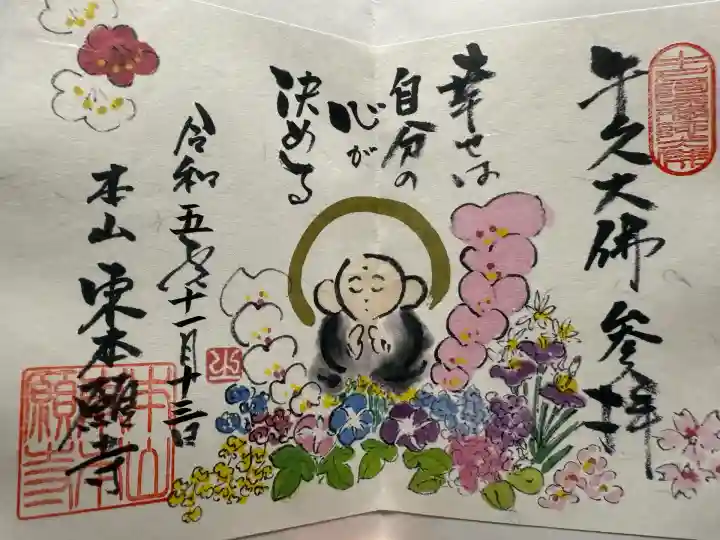 牛久大佛参拝
幸せは
自分の
心が
決める
令和五年十一月十三日
本山東本願寺